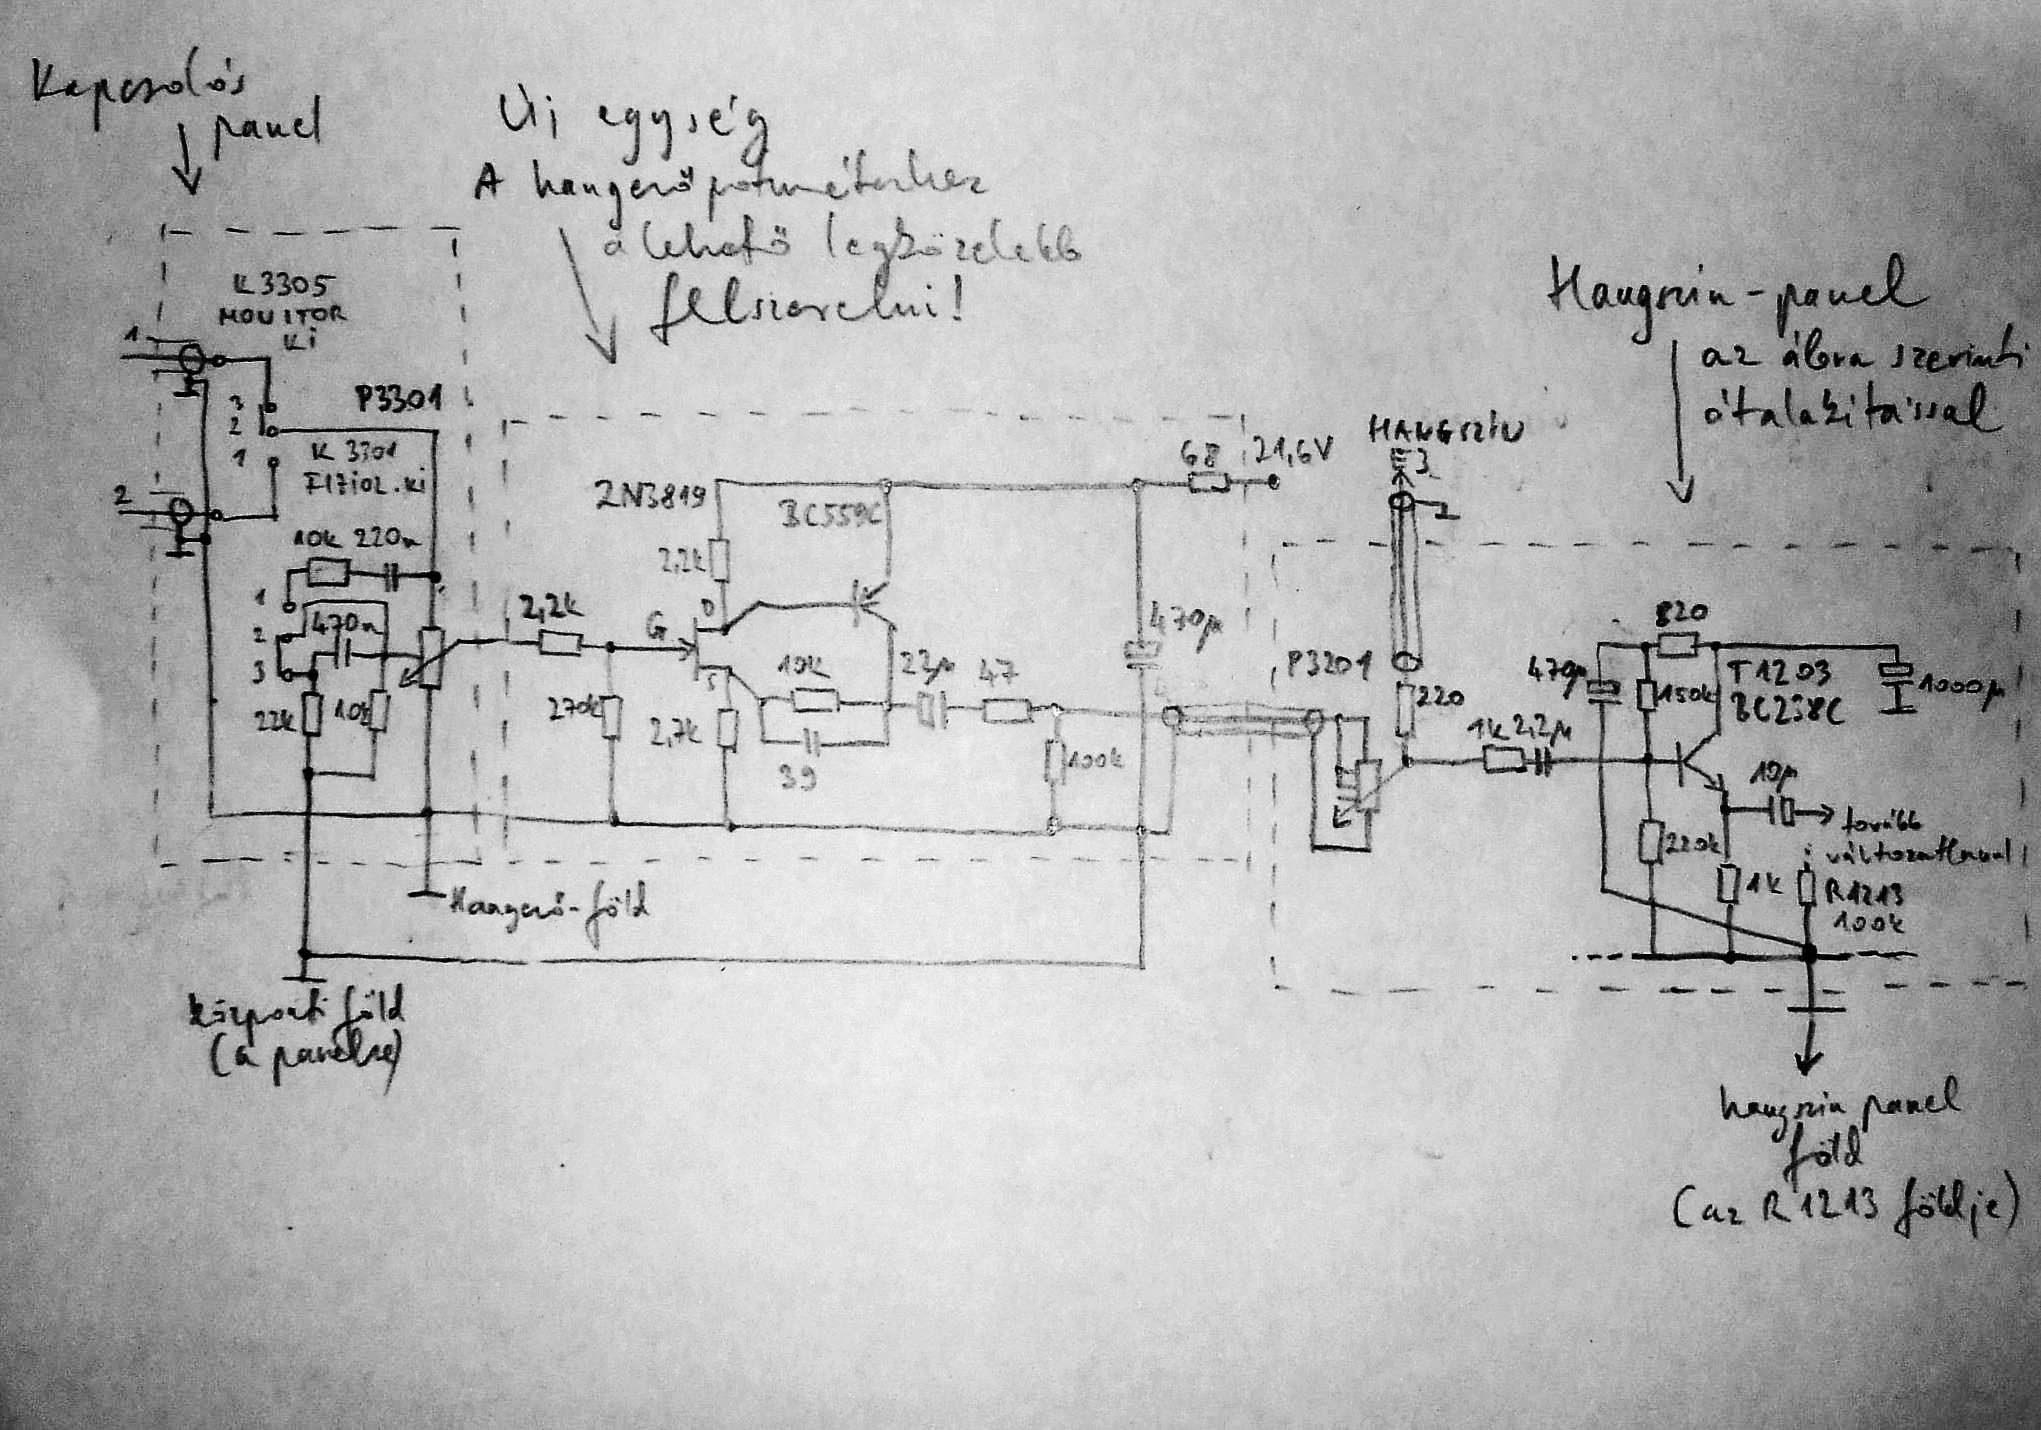 Kapcsolós
panel
Új egység
A hangerőpotméterhez
a lehető legközelebb
felszerelni!
Hangszín-panel
az ábra szerinti
átalakítással
K3305
MONITOR
Ki
1
3
2
1
P3301
K 3301
FIZIOL.Ki
2
10k 220n
1
2
3
470n
22k
10k
Hangerő-föld
Központi föld
(a panelre)
2,2k
270k
2N3819
2,2k
G
D
S
2,7k
BC559C
10k
39
22µ
47
100k
470µ
68
21,6V
HANGSZÍN
E3
2
P3201
220
1k 2,2µ
470µ
820
150k
T1203
BC238C
1000µ
10µ
tovább
változatlanul!
220k
1k
R1213
100k
hangszín panel
föld
(az R1213 földje)